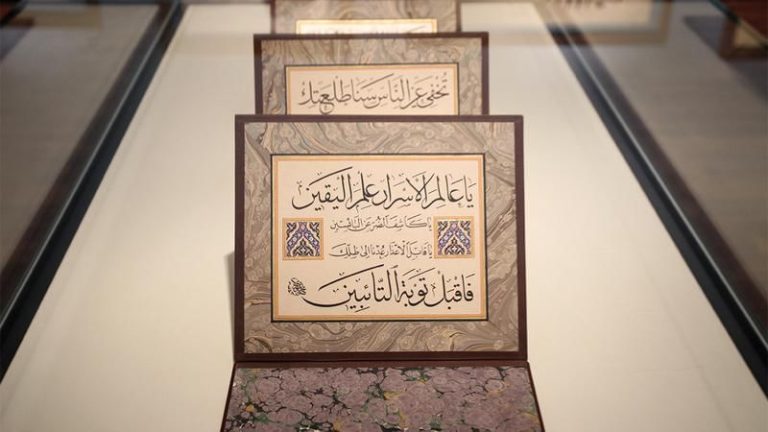 تُخْفِي عَنِ النَّاسِ سَنَا طَلْعَتِكَ
يَا عَالِمَ الْأَسْرَارِ عِلْمَ الْيَقِينِ
يَا كَاشِفَ الضُّرِّ عَنِ الْبَائِسِينَ
يَا قَابِلَ الْأَعْذَارِ عُدْنَا إِلَى ظِلِّكَ
فَاقْبَلْ تَوْبَةَ التَّائِبِينَ